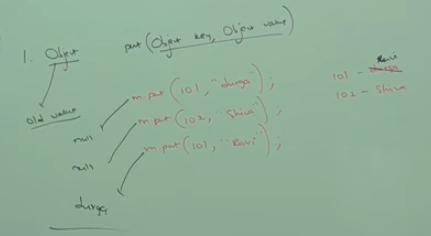 1. Object put (Object key, Object value)
old value
null m.put (101, "durga");
null m.put (102, "Shiva");
durga m.put (101, "Ravi");
Ravi
101 - durga
102 - Shiva